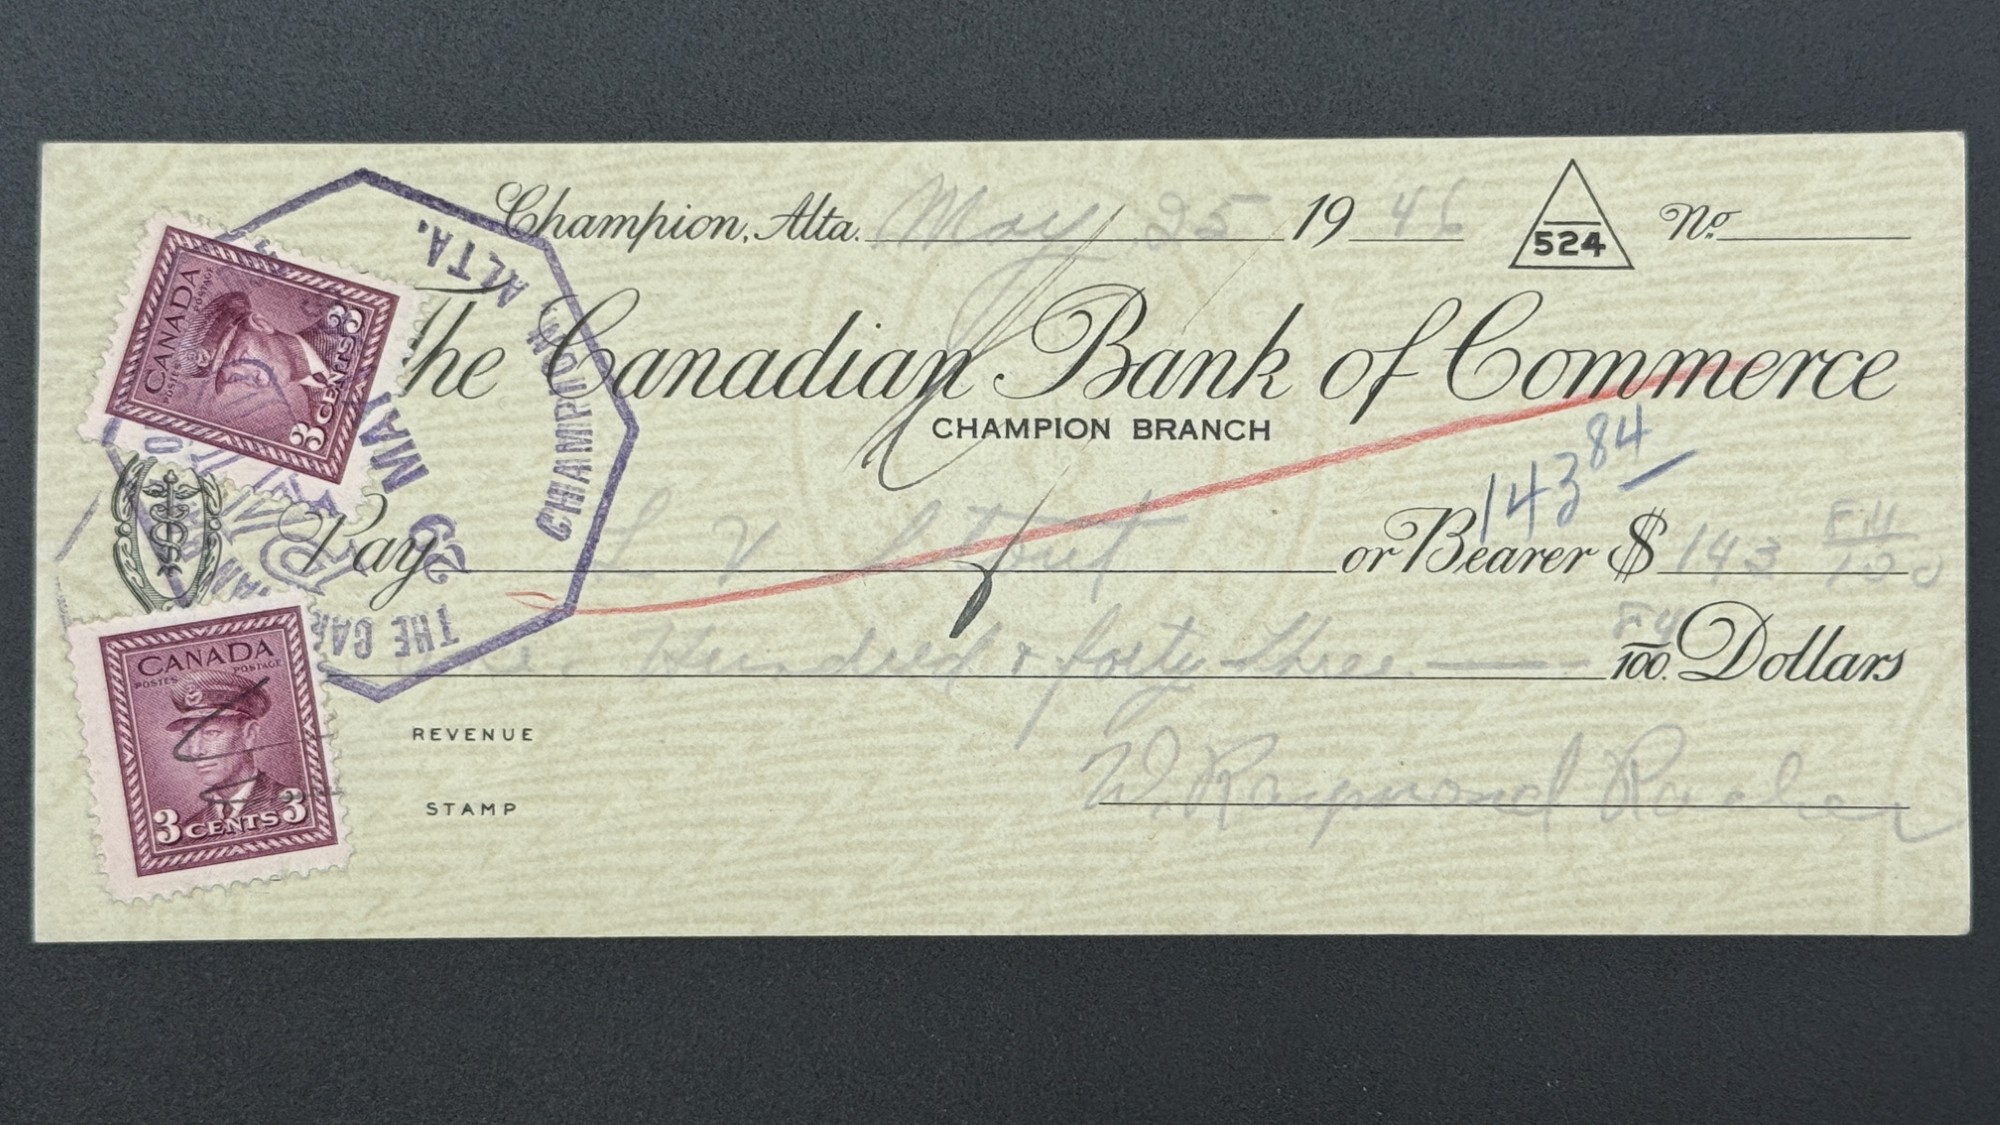 Champion, Alta. May 25 1946 524 No.
The Canadian Bank of Commerce
CHAMPION BRANCH
143 84
Pay L V Stout or Bearer $ 143 84/100
One Hundred & forty three 84/100 Dollars
REVENUE
STAMP
W. Raymond
CANADA
POSTES POSTAGE
3 CENTS 3
CANADA
POSTES POSTAGE
3 CENTS 3
THE CAN
CHAMPION, ALTA.
MAY